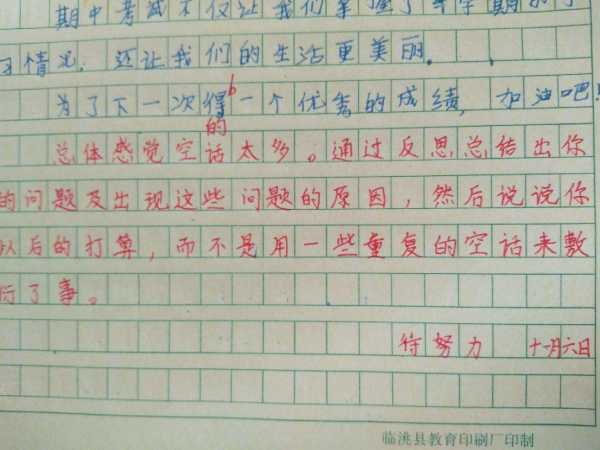 期中考试不仅让我们掌握了半学期的学
习情况，还让我们的生活更美丽。
为了下一次得一个优秀的成绩，加油吧！
的
总体感觉空话太多。通过反思总结出你
的问题及出现这些问题的原因，然后说说你
以后的打算，而不是用一些重复的空话来敷
衍了事。
待努力 十一月六日
临洮县教育印刷厂印制